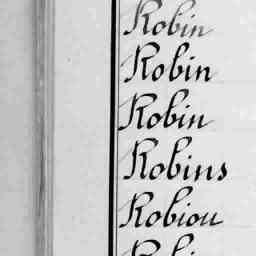 Robin
Robin
Robin
Robins
Robiou